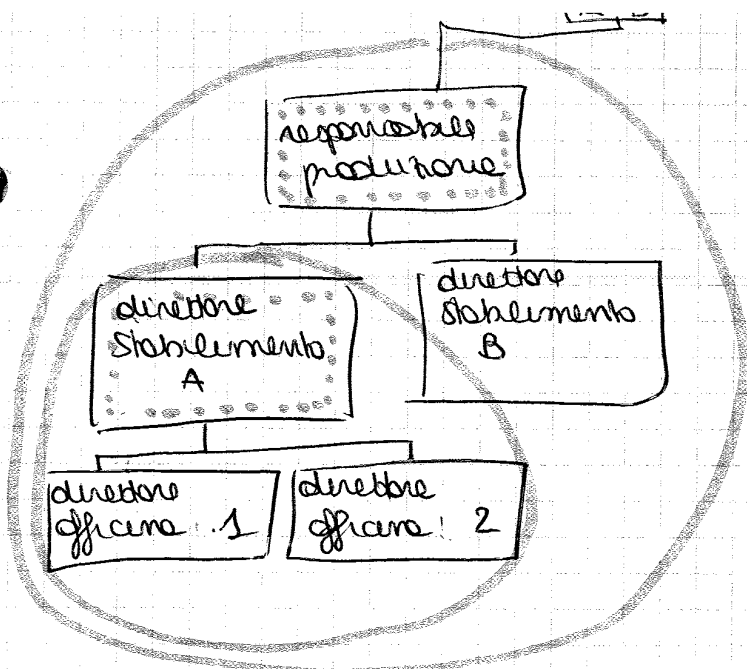 responsabile
produzione
direttore
stabilimento
A
direttore
stabilimento
B
direttore
officina 1
direttore
officina 2